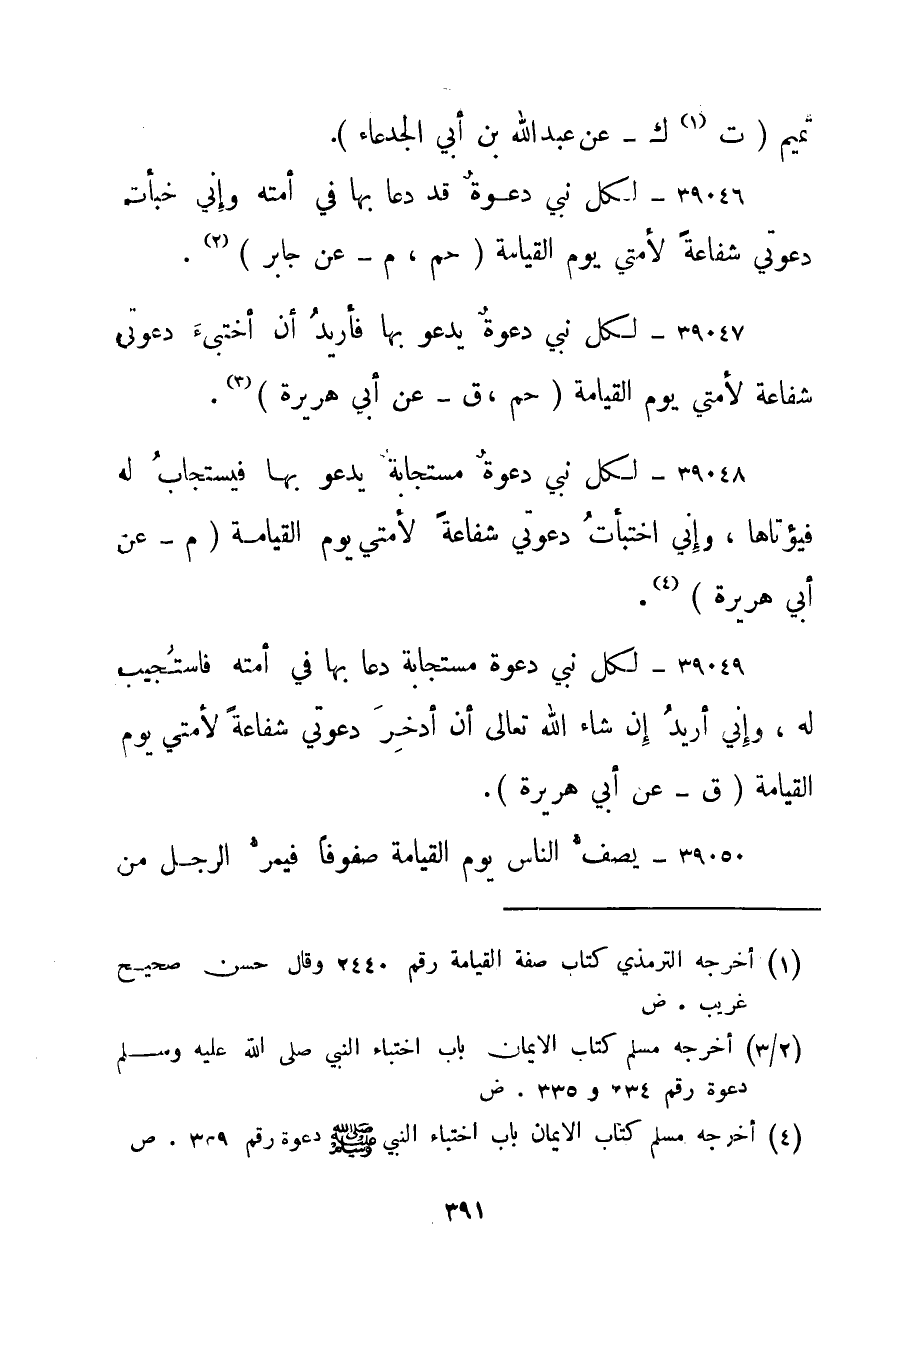 تميم ( ت (١) ك ـ عن عبدالله بن أبي الجدعاء ).
٣٩٠٤٦ ـ لكل نبي دعوةٌ قد دعا بها في أمته وإني خبأت
دعوتي شفاعةً لأمتي يوم القيامة ( حم ، م ـ عن جابر ) (٢) .
٣٩٠٤٧ ـ لكل نبي دعوةٌ يدعو بها فأريدُ أن أختبىءَ دعوتي
شفاعة لأمتي يوم القيامة ( حم ،ق ـ عن أبي هريرة ) (٣) .
٣٩٠٤٨ ـ لكل نبي دعوةٌ مستجابةٌ يدعو بها فيستجابُ له
فيؤتاها ، وإني اختبأتُ دعوتي شفاعةً لأمتي يوم القيامة ( م ـ عن
أبي هريرة ) (٤) .
٣٩٠٤٩ ـ لكل نبي دعوة مستجابة دعا بها في أمته فاستُجيب
له ، وإني أريدُ إن شاء الله تعالى أن أدخِرَ دعوتي شفاعةً لأمتي يوم
القيامة ( ق ـ عن أبي هريرة ).
٣٩٠٥٠ ـ يصفُّ الناس يوم القيامة صفوفاً فيمرُّ الرجل من
(١) أخرجه الترمذي كتاب صفة القيامة رقم ٢٤٤٠ وقال حسن صحيح
غريب . ض
(٣/٢) أخرجه مسلم كتاب الايمان باب اختباء النبي صلى الله عليه وسلم
دعوة رقم ٣٣٤ و ٣٣٥ . ض
(٤) أخرجه مسلم كتاب الايمان باب اختباء النبي ﷺ دعوة رقم . ص
٣٩١